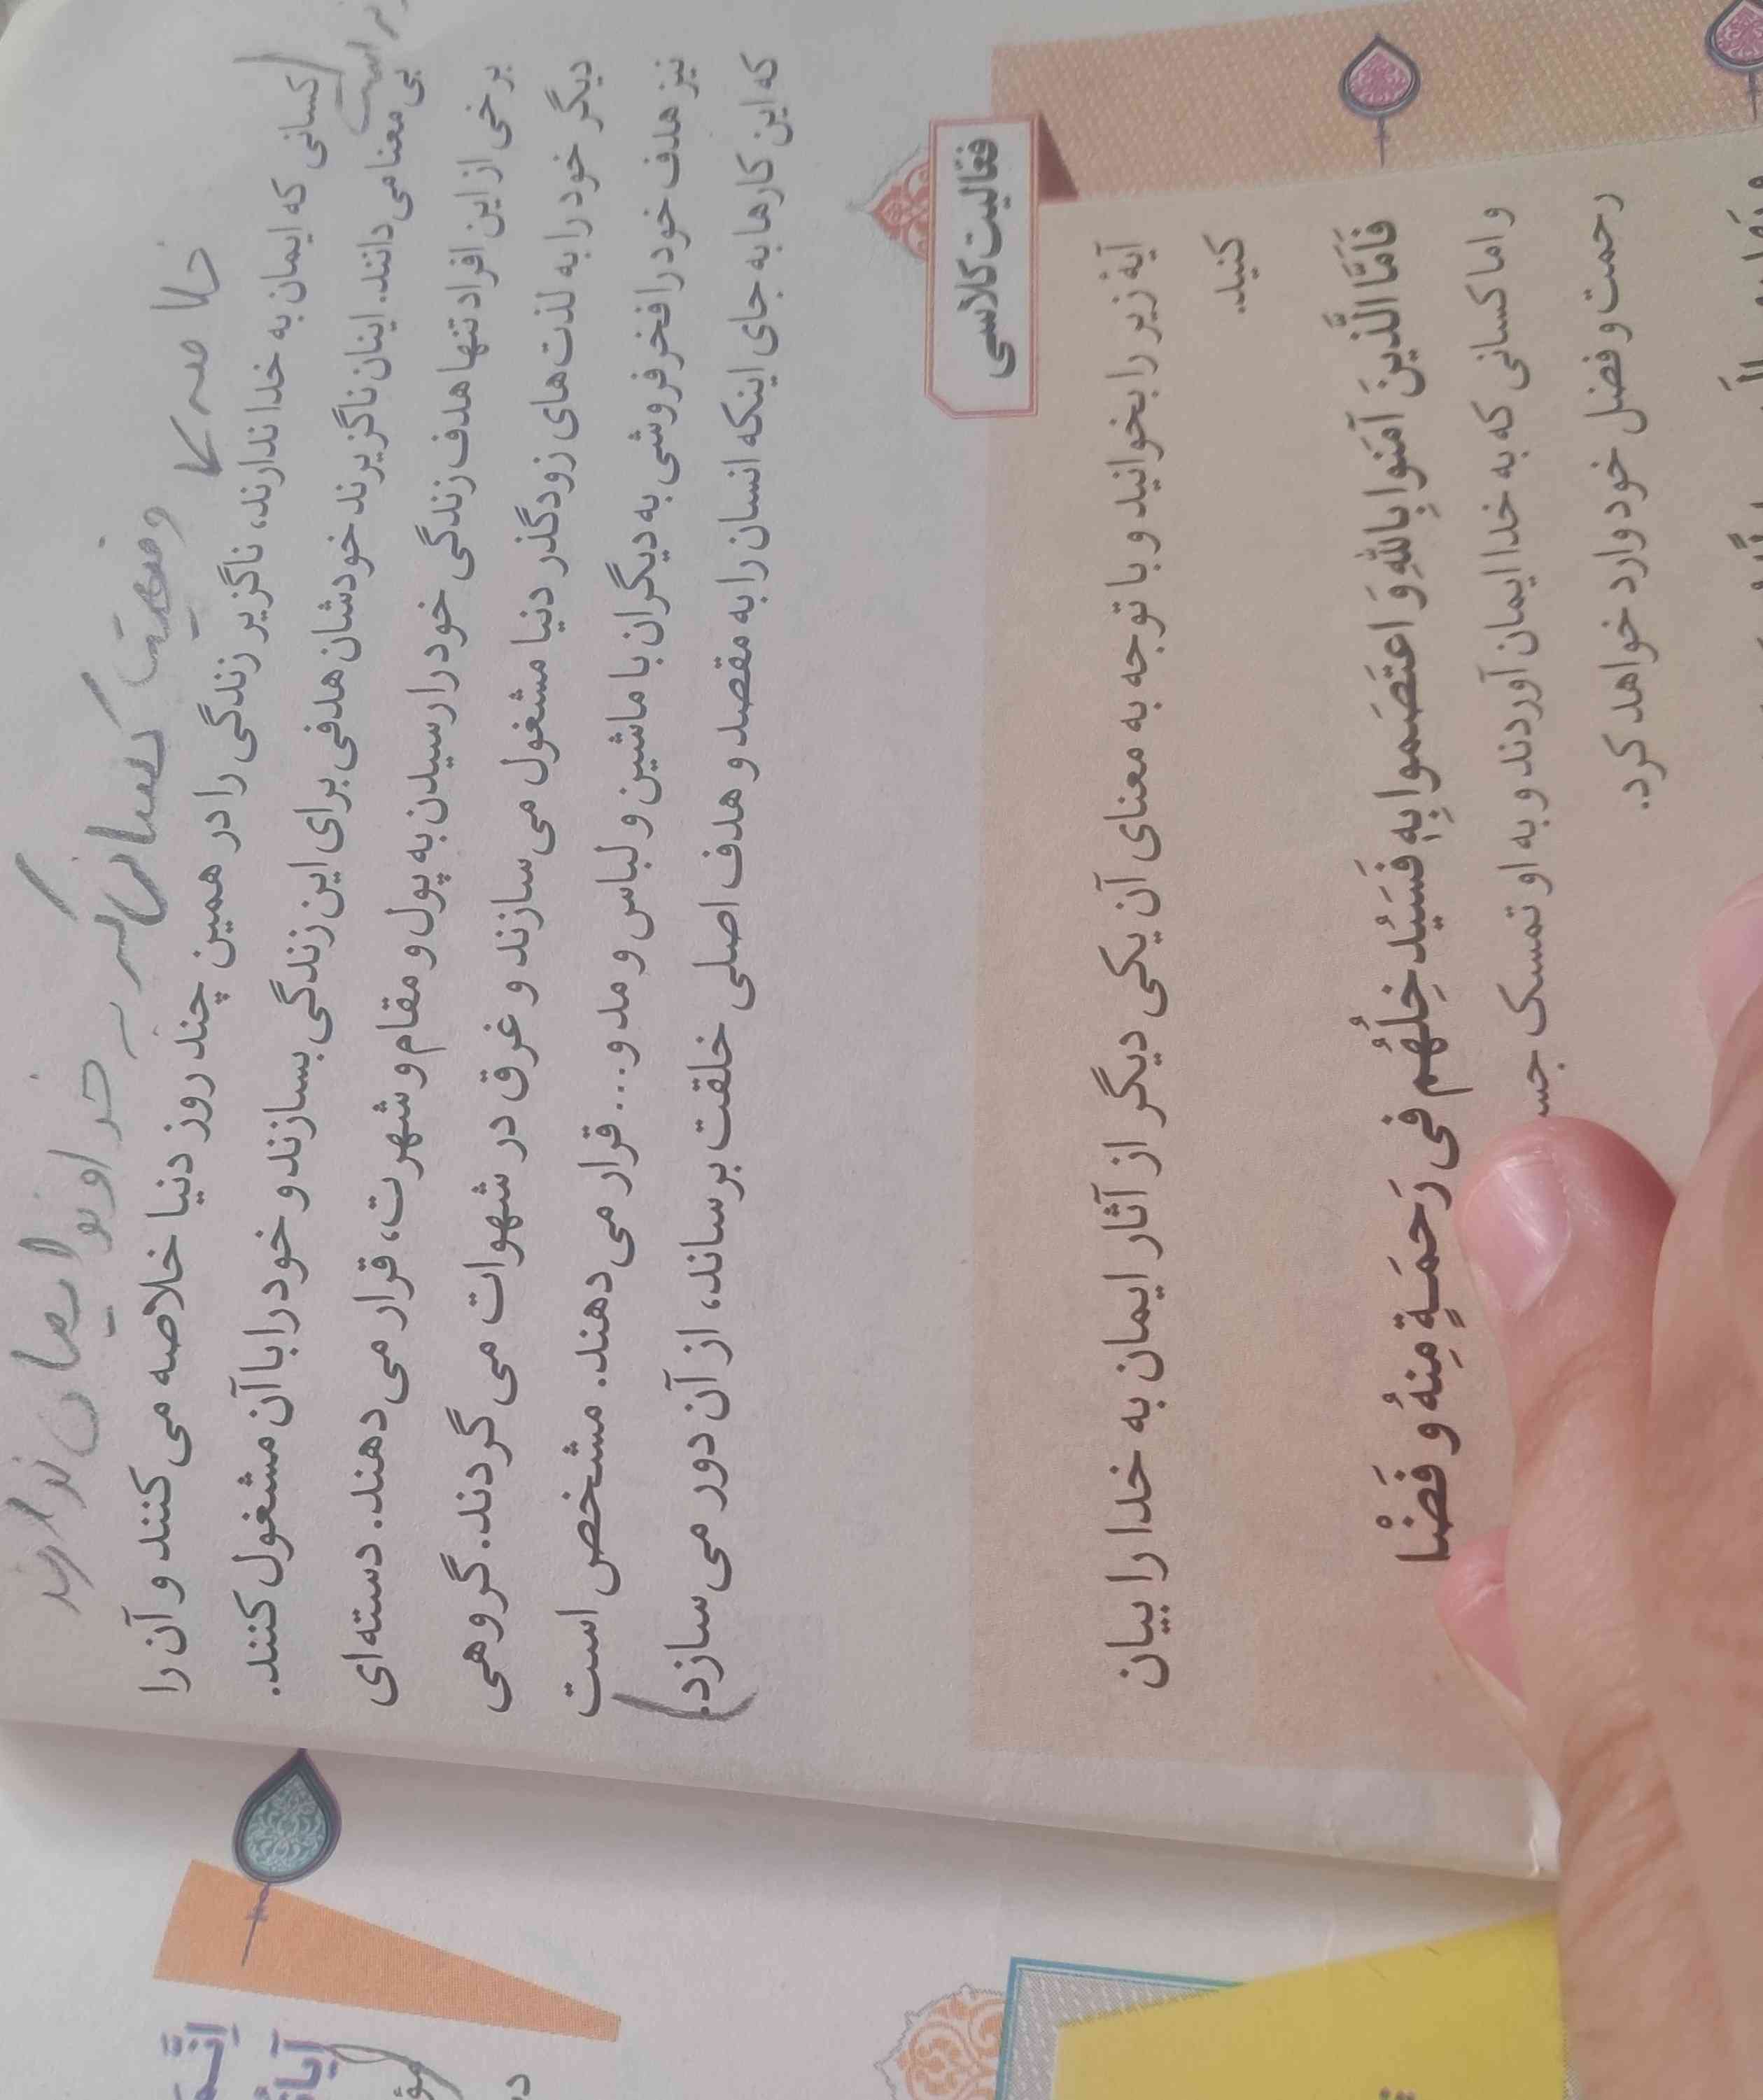 خلاصه کا
وضعیت کسانی که به خداوند ایمان ندارند
کسانی که ایمان به خدا ندارند، ناگزیر زندگی را در همین چند روز دنیا خلاصه می کنند و آن را
بی معنا می دانند. اینان ناگزیرند خودشان هدفی برای این زندگی بسازند و خود را با آن مشغول کنند.
برخی از این افراد تنها هدف زندگی خود را رسیدن به پول و مقام و شهرت، قرار می دهند. دسته ای
دیگر خود را به لذت های زودگذر دنیا مشغول می سازند و غرق در شهوات می گردند. گروهی
نیز هدف خود را فخر فروشی به دیگران با ماشین و لباس و مد و... قرار می دهند. مشخص است
که این کارها به جای اینکه انسان را به مقصد و هدف اصلی خلقت برساند، از آن دور می سازد.
فعّالیت کلاسی
آیهٔ زیر را بخوانید و با توجه به معنای آن یکی دیگر از آثار ایمان به خدا را بیان
کنید.
فَاَمَّا الَّذینَ آمَنوا بِاللّٰهِ وَ اعتَصَموا بِهٖ فَسَیُدخِلُهُم فی رَحمَةٍ مِنهُ وَ فَضْلٍ
و اما کسانی که به خدا ایمان آوردند و به او تمسک
رحمت و فضل خود وارد خواهد کرد.